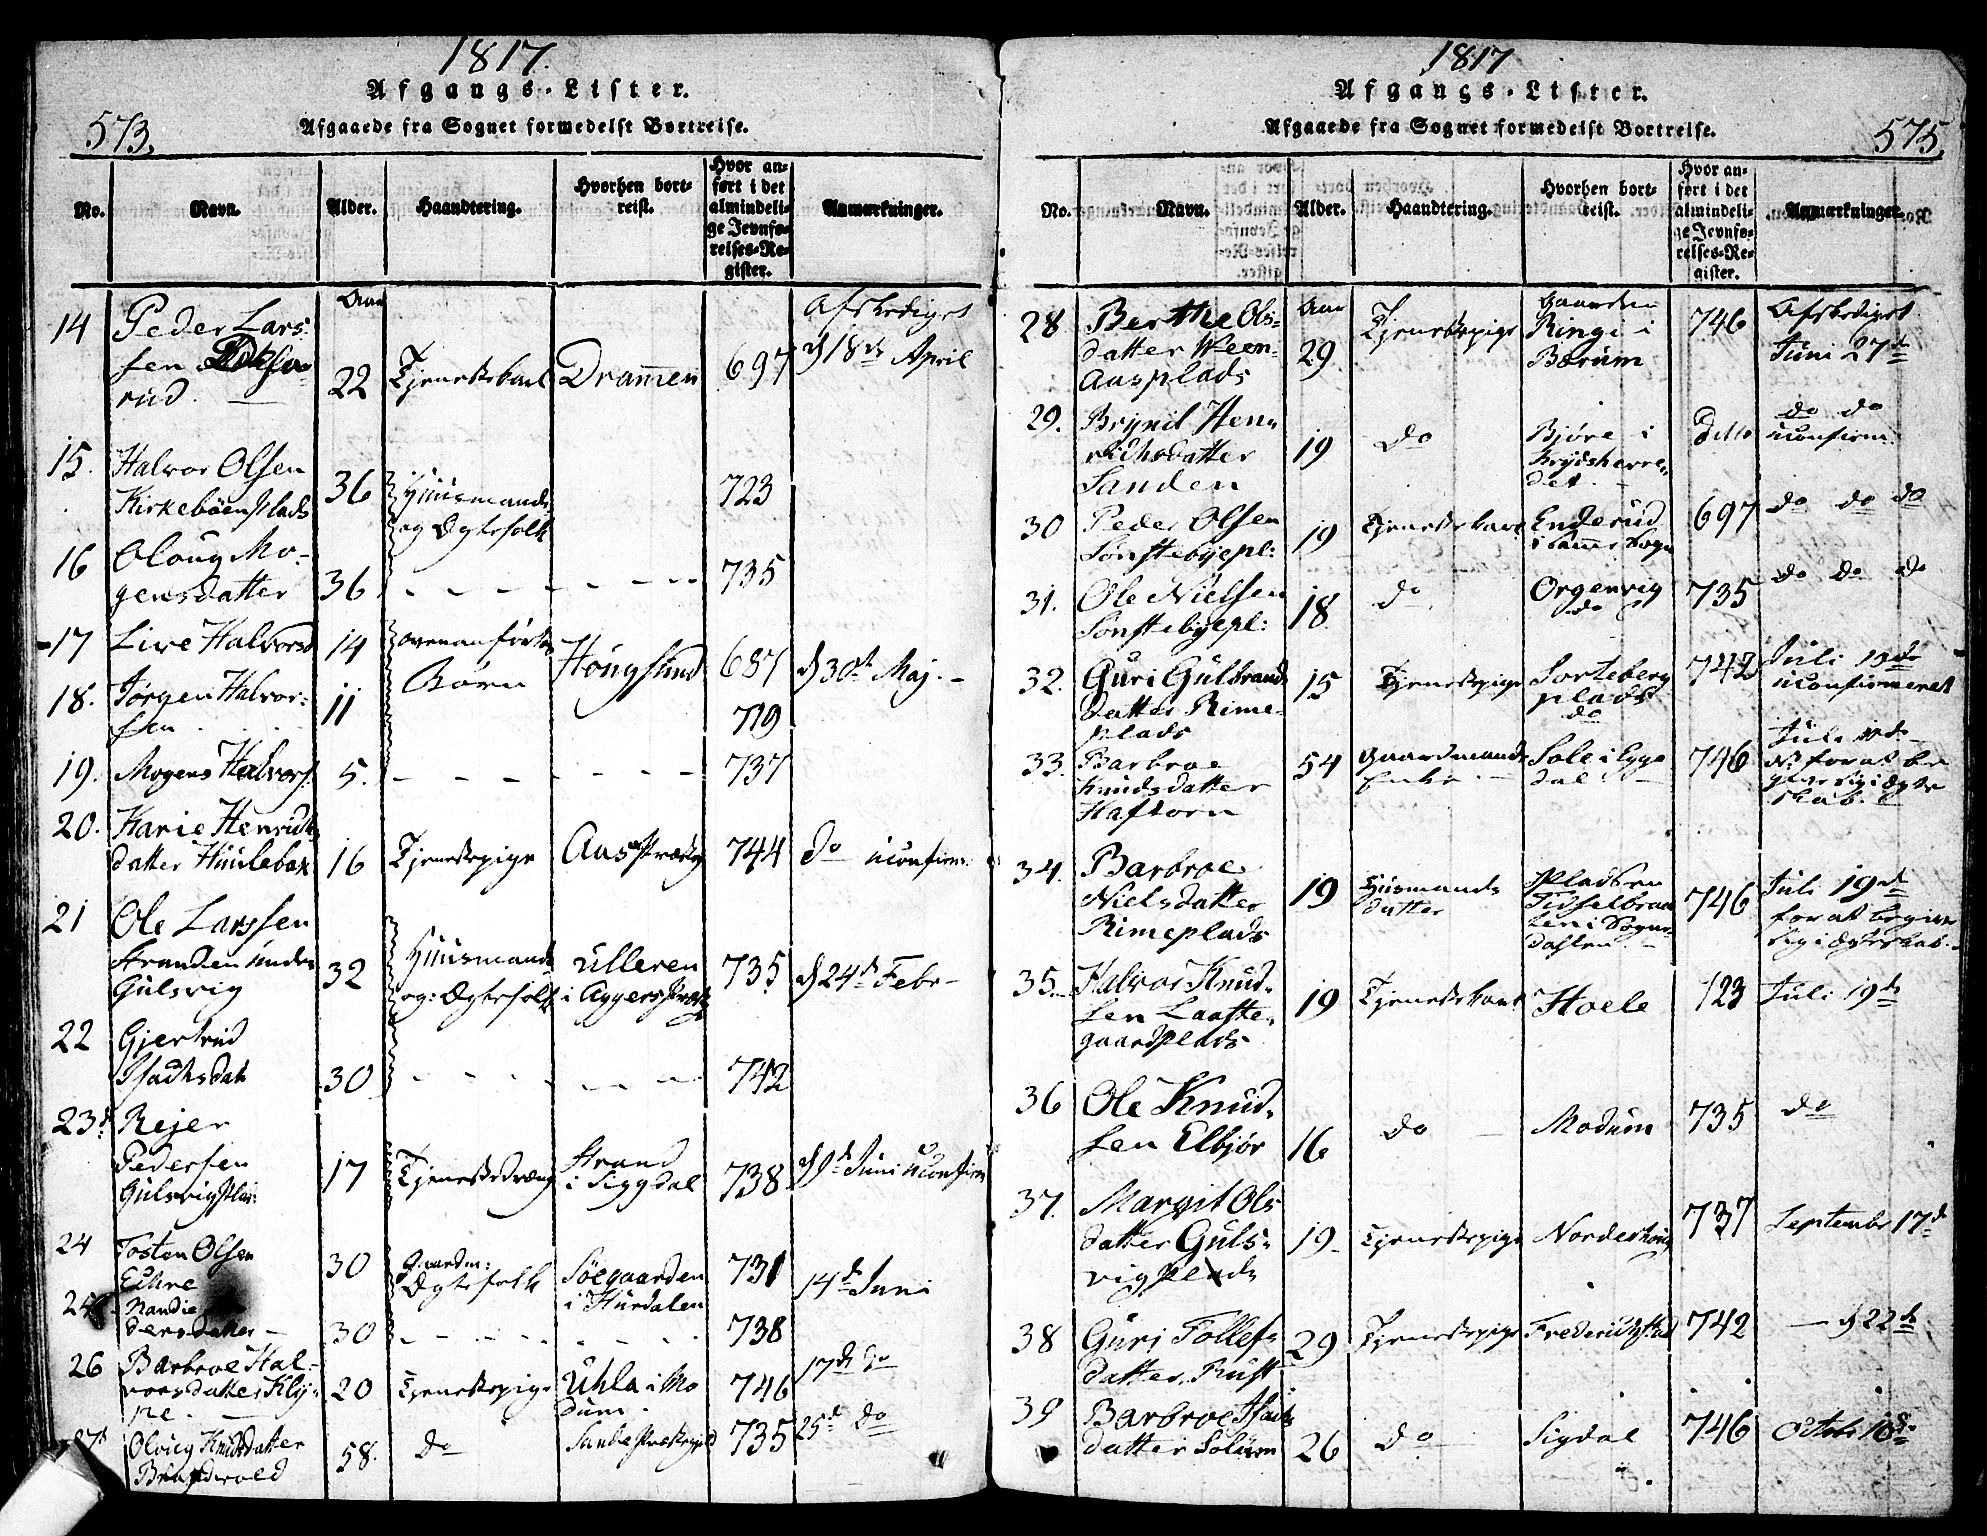 1817.
Afgangs-Lister.
573.
Afgaaede fra Sognet formedelst Bortreise.
No. Navn. Alder. Haandtering. Hvorhen bortreist. Hvor anført i det almindelige Jevnførelses-Register. Anmærkninger.
Aar
14 Peder Lars-
sen
rud. 22 Tjenestekarl Drammen 697 Afskediget d 18de April
15. Halvor Olsen
Kirkeböenplads 36 Huusmands
og Ægtefolk 723
16 Oloug Mo-
gensdatter 36 - - - - - - 735
17 Live Halvorsd 14 ovenanførtes
Börn Höugsund 687 d 30te Maj. -
18. Jörgen Halvor-
sen 11 719
19. Mogens Halvors. 5. - - - - - - 737
20. Karie Henrichs
datter Huulebak 16 Tjenestepige Aas Præsteg 744 do uconfirm.
21 Ole Larssen
Stranden under
Gulsvig 32 Huusmands
og Ægtefolk Ulleren
i Aggers Præsteg 735 d 24de Febr -
22 Gjertrud
Isachsdatr 30 - - - - - - 742
23d Rejer
Pedersen
Gulsvigplds: 17 Tjenestedreng Strand
i Siggdal 738 d 9de Juni uconfirm
24 Tosten Olsen
30 Gaardm:
Ægtefolk Söegaarden
i Hurdalen 731 14de Juni
25 Nandie
dersdatter - 30 - - - - - 738
26 Barbroe Hal-
vorsdatter Kly-
pe. 20 Tjenestepige Uhla i Mo
dum. 746 17de do
27d Oloug Knudsdatter
58. do Sande Præstegield 735 25d do
1817
Afgangs-Lister.
Afgaaede fra Sognet formedelst Bortreise.
575.
No. Navn. Alder. Haandtering. Hvorhen bortreist. Hvor anført i det almindelige Jevnførelses-Register. Anmærkninger.
28 Berthe Ols-
datter Ween-
Aasplads Aar
29 Tjenestepige Gaarden
Ringi i
Bærum 746 Afskediget
Juni 27d
29. Brynil Hen-
richsdatter
Sanden 19 do Björe i
Krydsherre-
det. Ditto do do
uconfirm.
30 Peder Olsen
Sönstebyepl: 19 Tjenestekarl Enderud
i samme Sogn 697 do do do
31. Ole Nielsen
Sönstebyepl: 18 do Orgenvig
do 735 do do do
32. Guri Gulbrands
datter Rime-
plads 15 Tjenestepige Sorteberg
plads
do 742 Juli 19de
uconfirmeret
33. Barbroe
Knudsdatter
Haftorn 54 Gaardmands
Enke. - Sole i Egge
dal - 746 Juli
for at be
give sig i Ægte
skab.
34. Barbroe
Nielsdatter
Rimeplads 19 Husmands
datter Pladsen
Tidselbraa
ten i Sogne-
dahlen. - 746 Juli 19de
for at begive
sig i Ægteskab. -
35. Halvor Knud-
sen Laafte-
gaardplads 19 Tjenestekarl Hoele 723 Juli 19de
36 Ole Knud-
sen Elbjör 16 do - Modum 735 do
37. Margit Ols
datter Guls-
vigplads 19- Tjenestepige Norderhoug 737 Septembr 17d
38 Guri Tollefs
datter. Rust 29 Tjenestepige Frederichstad 742 - d 22de
39 Barbroe Isachs
datter Solum 26 do Sigdal 746 Octobr 18de